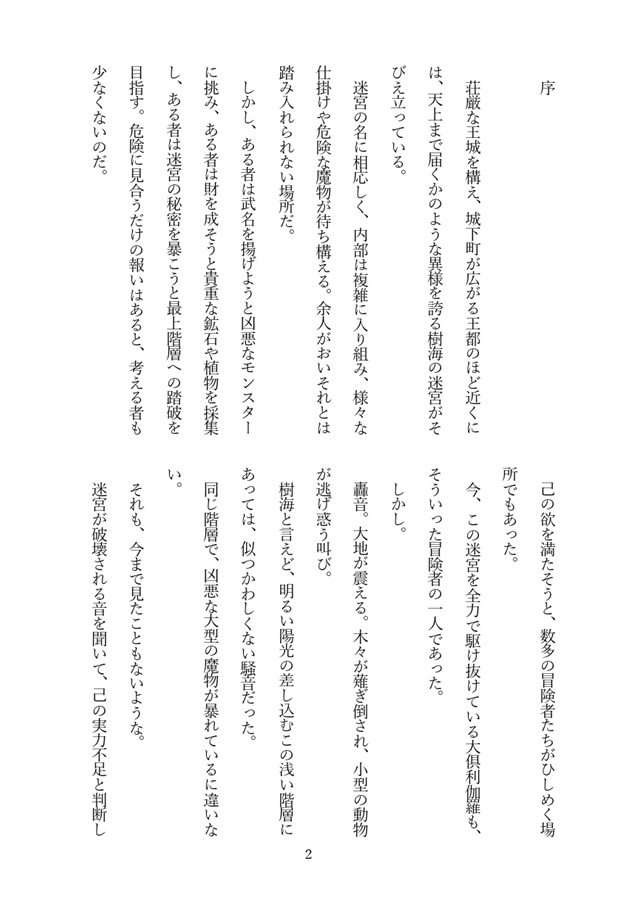 序
　荘厳な王城を構え、城下町が広がる王都のほど近くに
は、天上まで届くかのような異様を誇る樹海の迷宮がそ
びえ立っている。
　迷宮の名に相応しく、内部は複雑に入り組み、様々な
仕掛けや危険な魔物が待ち構える。余人がおいそれとは
踏み入れられない場所だ。
　しかし、ある者は武名を揚げようと凶悪なモンスター
に挑み、ある者は財を成そうと貴重な鉱石や植物を採集
し、ある者は迷宮の秘密を暴こうと最上階層への踏破を
目指す。危険に見合うだけの報いはあると、考える者も
少なくないのだ。
　己の欲を満たそうと、数多の冒険者たちがひしめく場
所でもあった。
　今、この迷宮を全力で駆け抜けている大倶利伽羅も、
そういった冒険者の一人であった。
　しかし。
　轟音。大地が震える。木々が薙ぎ倒され、小型の動物
が逃げ惑う叫び。
　樹海と言えど、明るい陽光の差し込むこの浅い階層に
あっては、似つかわしくない騒音だった。
　同じ階層で、凶悪な大型の魔物が暴れているに違いな
い。
　それも、今まで見たこともないような。
　迷宮が破壊される音を聞いて、己の実力不足と判断し
2